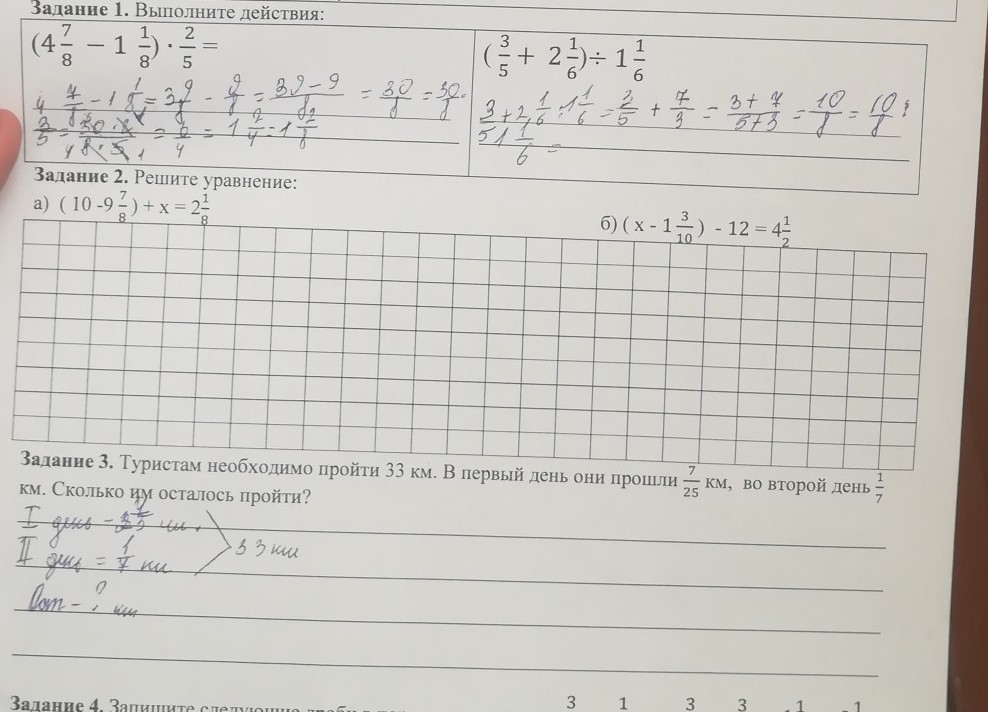 Задание 1. Выполните действия:
(4 7/8 − 1 1/8) · 2/5 =
(3/5 + 2 1/6) ÷ 1 1/6
4 7/8 - 1 1/8 = 3 9/8 - 9/8 = 39-9/8 = 30/8 = 30/8 ·
3/5 + 2 1/6 : 1 1/6 = 2/5 + 7/3 = 3+7/5+3 = 10/8 = 10/8
= 6/4 = 1 2/4 = 1
5 1 1/6 =
Задание 2. Решите уравнение:
а) ( 10 -9 7/8 ) + x = 2 1/8
б) ( x - 1 3/10 ) - 12 = 4 1/2
Задание 3. Туристам необходимо пройти 33 км. В первый день они прошли 7/25 км, во второй день 1/7
км. Сколько им осталось пройти?
I день -
33 км
II день = 1/7 км
Ост - ? км
Задание 4. Запишите следующие дроби в
3 1 3 3 1 1